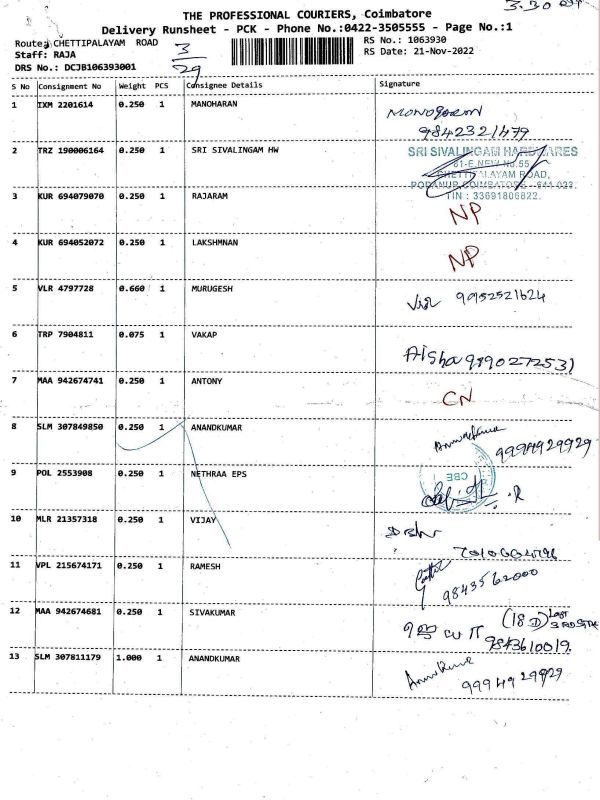 3.30
THE PROFESSIONAL COURIERS, Coimbatore
Delivery Runsheet - PCK - Phone No.:0422-3505555 - Page No.:1
Route: CHETTIPALAYAM ROAD
3/29
RS No.: 1063930
Staff: RAJA
RS Date: 21-Nov-2022
DRS No.: DCJB106393001
S No Consignment No Weight PCS Consignee Details Signature
1 IXM 2201614 0.250 1 MANOHARAN
9842321479
2 TRZ 190006164 0.250 1 SRI SIVALINGAM HW
SRI SIVALINGAM HARDWARES
61-E, NEW No.55,
CHETTIPALAYAM ROAD,
PODANUR, COIMBATORE - 641 023.
TIN : 33691806822.
3 KUR 694079070 0.250 1 RAJARAM NP
4 KUR 694052072 0.250 1 LAKSHMNAN NP
5 VLR 4797728 0.660 1 MURUGESH 9952521624
6 TRP 7904811 0.075 1 VAKAP Aisha 9890272531
7 MAA 942674741 0.250 1 ANTONY CN
8 SLM 307849850 0.250 1 ANANDKUMAR 9994929929
9 POL 2553908 0.250 1 NETHRAA EPS
CBE
10 MLR 21357318 0.250 1 VIJAY
11 VPL 215674171 0.250 1 RAMESH 9843562000
12 MAA 942674681 0.250 1 SIVAKUMAR (18 D) Last
9843610019
13 SLM 307811179 1.000 1 ANANDKUMAR 9994929929